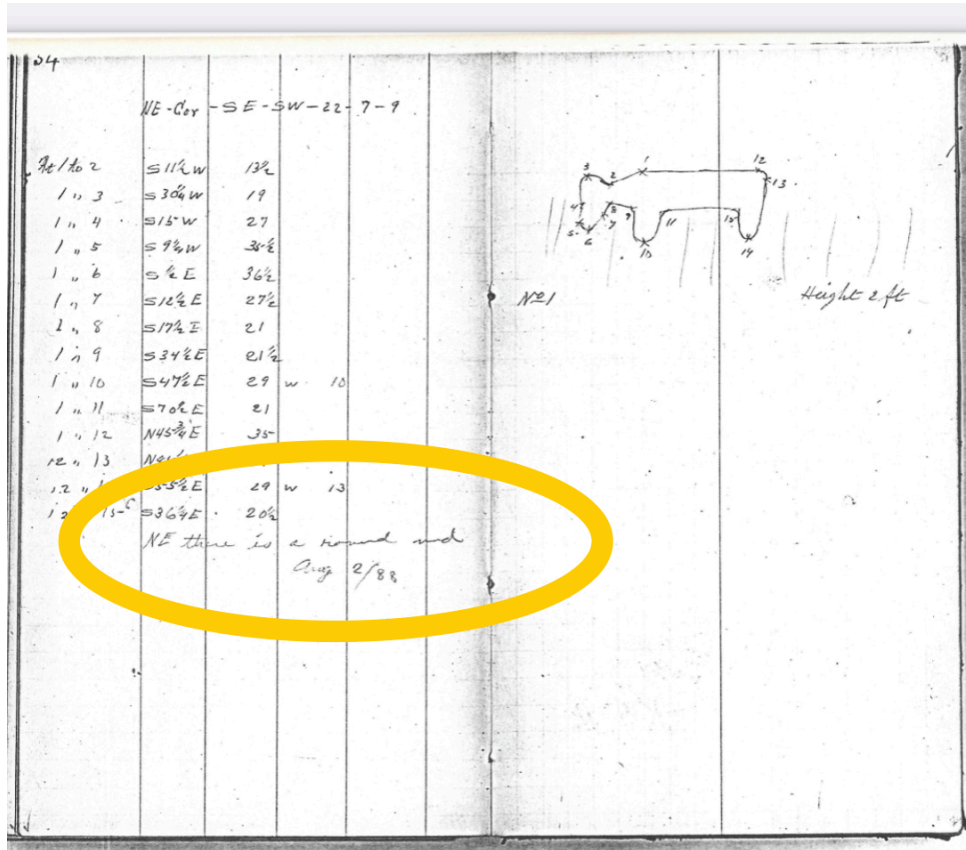 54
NE-Cor-SE-SW-22-7-9
1 to 2 S 11 1/2 W 13 1/2
1 " 3 S 30 1/4 W 19
1 " 4 S 15 W 27
1 " 5 S 9 3/4 W 35 1/2
1 " 6 S 1/2 E 36 1/2
1 " 7 S 12 1/2 E 27 1/2
1 " 8 S 17 1/2 E 21
1 " 9 S 34 1/2 E 21 1/2
1 " 10 S 47 1/2 E 29 W 10
1 " 11 S 70 1/2 E 21
1 " 12 N 45 3/4 E 35
12 " 13
S 55 1/2 E 29 W 13
15 S 36 1/4 E 20 1/2
NE there is a round md
Aug 2/88
3 1 12
2 13
4 8 9 11 15
5 6 7
10 14
No 1 Height 2 ft